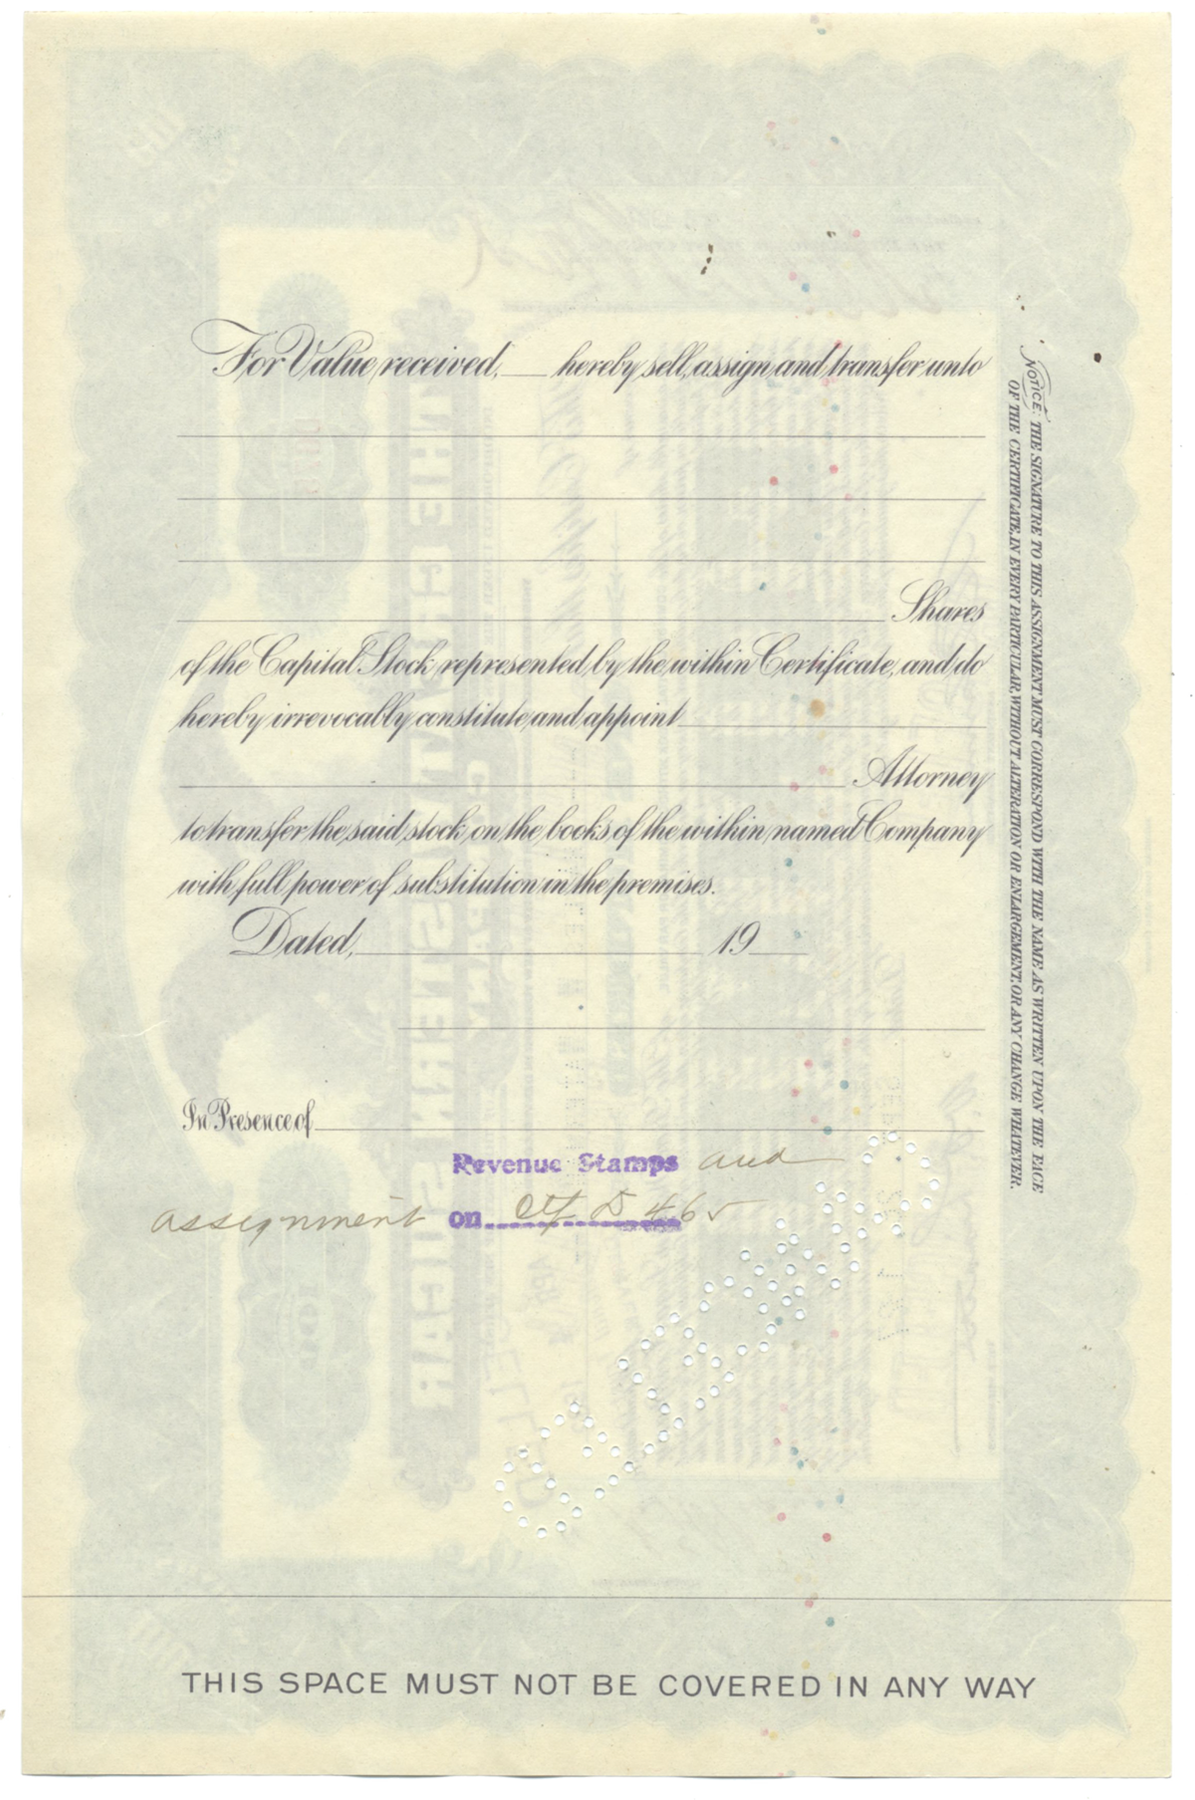 For Value received, ___ hereby sell, assign and transfer unto
Shares
of the Capital Stock represented by the within Certificate, and do
hereby irrevocably constitute and appoint
Attorney
to transfer the said stock on the books of the within named Company
with full power of substitution in the premises.
Dated, 19
In Presence of
Revenue Stamps and
assignment on Ctf D 465
THIS SPACE MUST NOT BE COVERED IN ANY WAY
NOTICE: THE SIGNATURE TO THIS ASSIGNMENT MUST CORRESPOND WITH THE NAME AS WRITTEN UPON THE FACE
OF THE CERTIFICATE, IN EVERY PARTICULAR, WITHOUT ALTERATION OR ENLARGEMENT, OR ANY CHANGE WHATEVER.